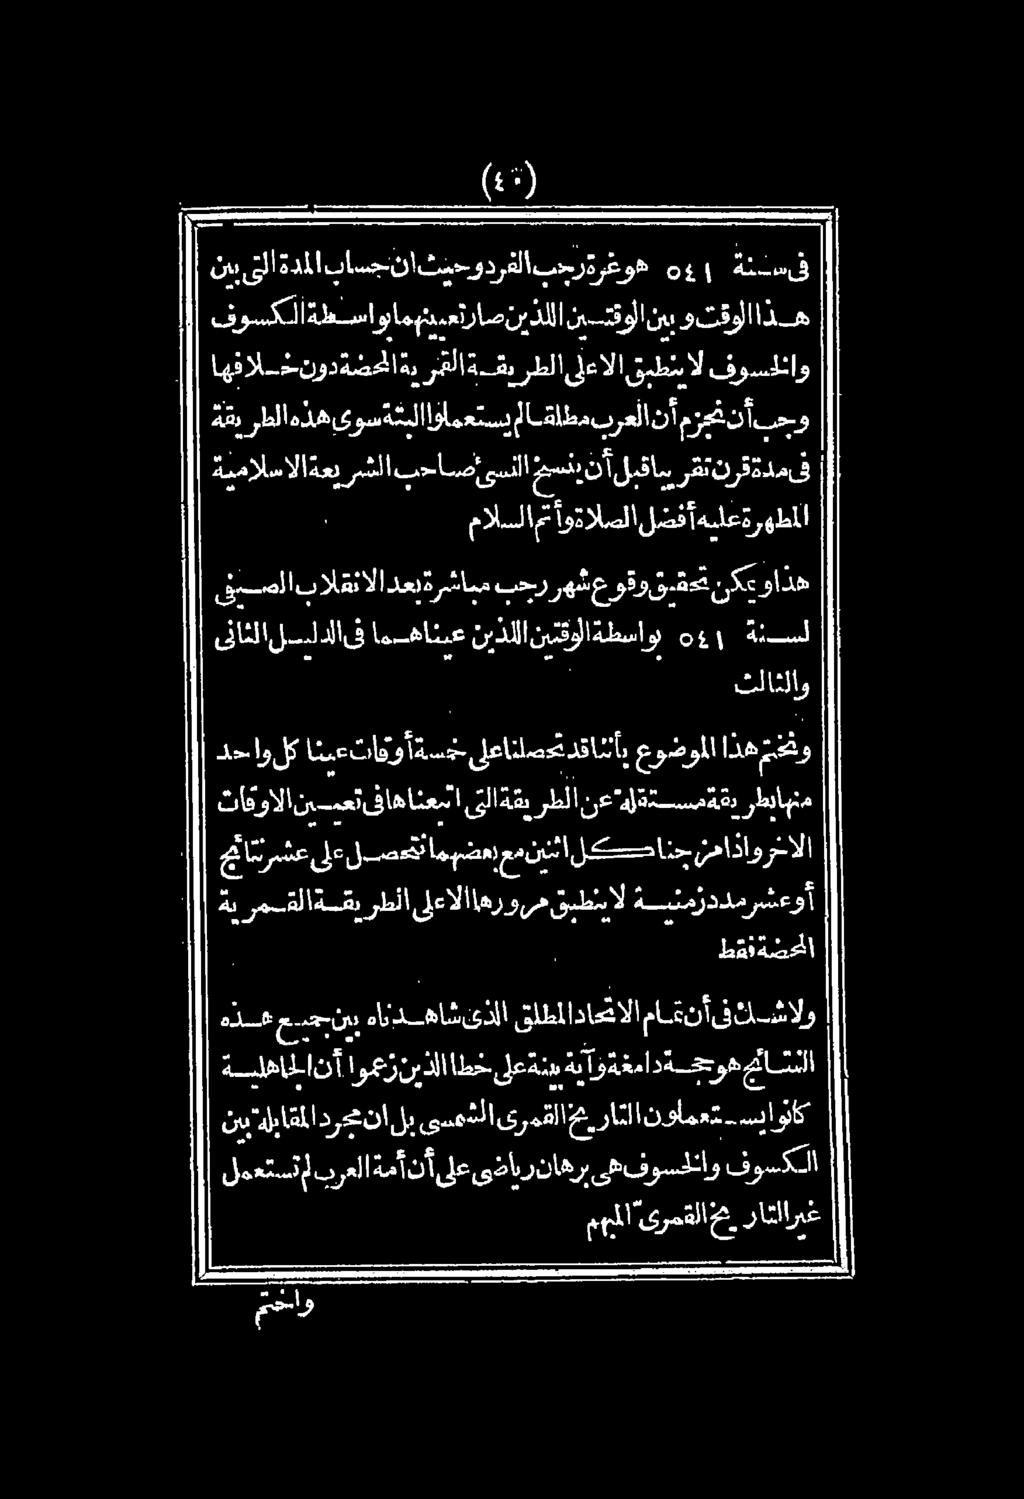 (٤٠)
فى سنة ٥٤١ هو غرة رجب الفرد وحيث ان حساب المدة التى بين
هذا الوقت وبين الوقتين اللذين صار تعيينهما بواسطة الكسوف
والخسوف لا ينطبق الا على الطريقة القمرية المحضة دون خلافها
وجب أن نجزم أن العرب مطلقا لم يستعملوا البتة سوى هذه الطريقة
فى مدة قرن تقريبا قبل أن ينسخ النسىء صاحب الشريعة الاسلامية
المطهرة عليه أفضل الصلاة وأتم السلام
هذا ويمكن تحقيق وقوع شهر رجب مباشرة بعد الانقلاب الصيفى
لسنة ٥٤١ بواسطة الوقتين اللذين عيناهما فى الدليل الثانى
والثالث
ونختم هذا الموضوع بأننا قد تحصلنا على خمسة أوقات عينا كل واحد
منها بطريقة مستقلة عن الطريقة التى اتبعناها فى تعيين الاوقات
الاخر واذا مزجنا كل اثنين مع بعضهما نتحصل على عشر نتائج
أو عشر مدد زمنية لا ينطبق مرورها الا على الطريقة القمرية
المحضة فقط
ولا شك فى أن تمام الاتحاد المطلق الذى شاهدناه بين جميع هذه
النتائج هو حجة دامغة وآية بينة على خطا الذين زعموا أن الجاهلية
كانوا يستعملون التاريخ القمرى الشمسى بل ان مجرد المقابلة بين
الكسوف والخسوف هى برهان رياضى على أن أمة العرب لم تستعمل
غير التاريخ القمرى المبهم
واختم